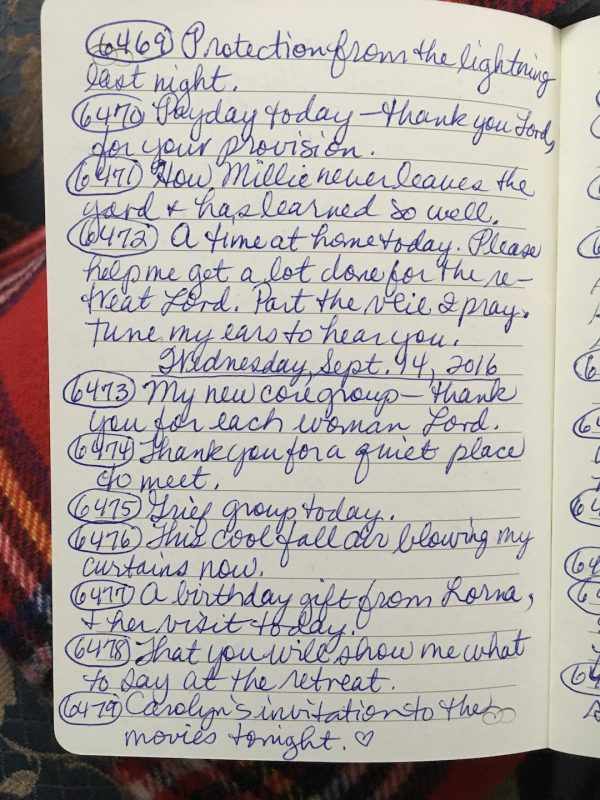 6469 Protection from the lightning
last night.
6470 Payday today – thank you Lord,
for your provision.
6471 How Millie never leaves the
yard & has learned so well.
6472 A time at home today. Please
help me get a lot done for the re-
treat Lord. Part the veie I pray.
Tune my ears to hear you.
Wednesday, Sept. 14, 2016
6473 My new core group – thank
you for each woman Lord.
6474 Thank you for a quiet place
to meet.
6475 Grief group today.
6476 This cool fall air blowing my
curtains now.
6477 A birthday gift from Lorna,
& her visit today.
6478 That you will show me what
to say at the retreat.
6479 Carolyn's invitation to the
movies tonight. ♡